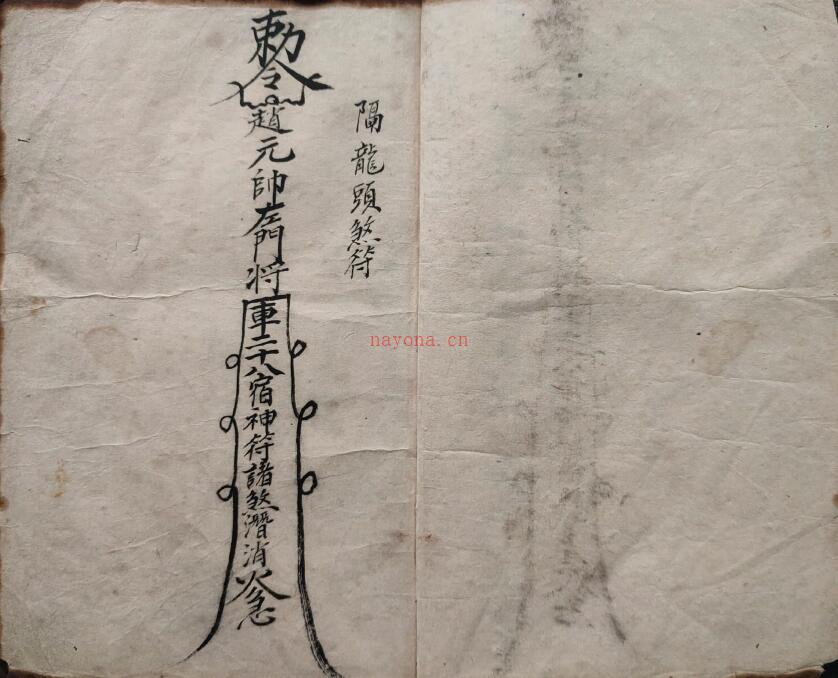 隔龍頭煞符
敕令趙元帥
將軍二十八宿神符諸煞潛消火急
nayona.cn